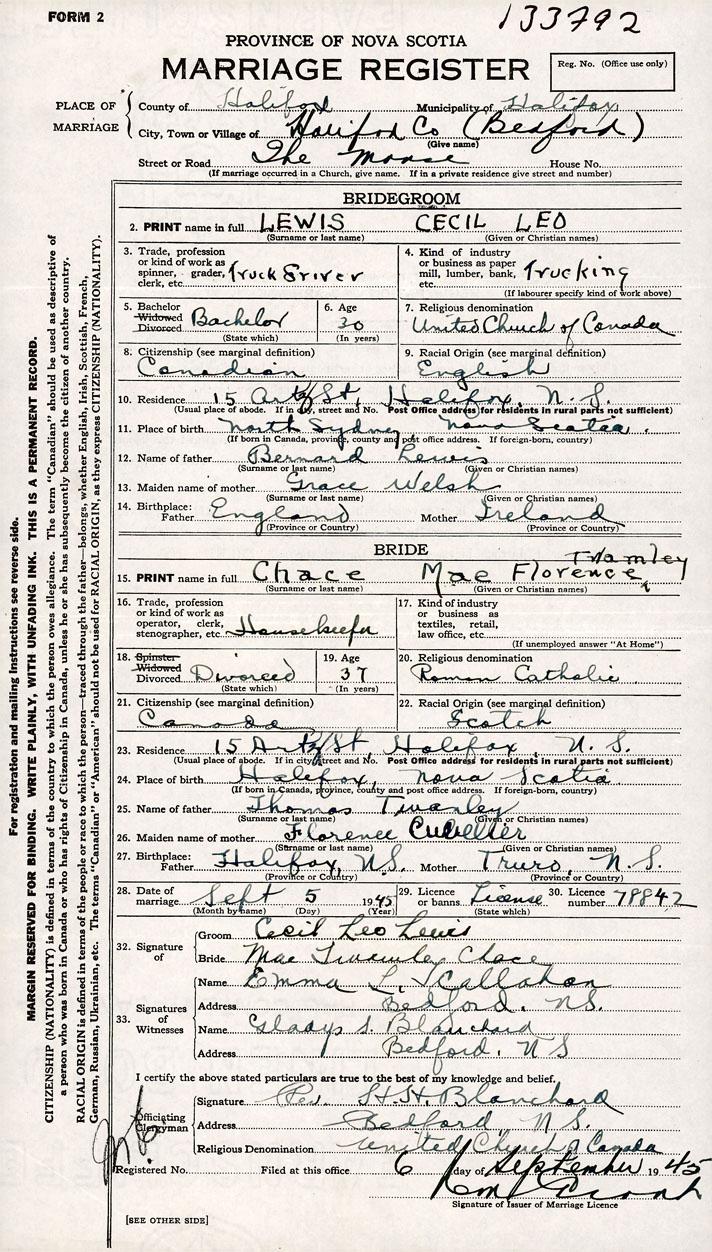 FORM 2
133792
PROVINCE OF NOVA SCOTIA
MARRIAGE REGISTER
Reg. No. (Office use only)
PLACE OF MARRIAGE
County of Halifax Municipality of Halifax
City, Town or Village of Halifax Co (Bedford)
(Give name)
Street or Road The Manse House No.
(If marriage occurred in a Church, give name. If in a private residence give street and number)
BRIDEGROOM
2. PRINT name in full LEWIS CECIL LEO
(Surname or last name) (Given or Christian names)
3. Trade, profession or kind of work as spinner, grader, clerk, etc. Truck Driver
4. Kind of industry or business as paper mill, lumber, bank, etc. Trucking
(If labourer specify kind of work above)
5. Bachelor Widowed Divorced Bachelor
(State which)
6. Age 30
(In years)
7. Religious denomination
United Church of Canada
8. Citizenship (see marginal definition)
Canadian
9. Racial Origin (see marginal definition)
English
10. Residence 15 Artz St, Halifax, N. S.
(Usual place of abode. If in city, street and No. Post Office address for residents in rural parts not sufficient)
11. Place of birth North Sydney Nova Scotia
(If born in Canada, province, county and post office address. If foreign-born, country)
12. Name of father Bernard Lewis
(Surname or last name) (Given or Christian names)
13. Maiden name of mother Grace Welsh
(Surname or last name) (Given or Christian names)
14. Birthplace: Father England Mother Ireland
(Province or Country) (Province or Country)
BRIDE
15. PRINT name in full Chace Mae Florence
(Surname or last name) (Given or Christian names)
16. Trade, profession or kind of work as operator, clerk, stenographer, etc. Housekeeper
17. Kind of industry or business as textiles, retail, law office, etc.
(If unemployed answer "At Home")
18. Spinster Widowed Divorced Divorced
(State which)
19. Age 37
(In years)
20. Religious denomination
Roman Catholic
21. Citizenship (see marginal definition)
Canada
22. Racial Origin (see marginal definition)
Scotch
23. Residence 15 Artz St, Halifax, N. S.
(Usual place of abode. If in city street and No. Post Office address for residents in rural parts not sufficient)
24. Place of birth Halifax, Nova Scotia
(If born in Canada, province, county and post office address. If foreign-born, country)
25. Name of father Thomas
(Surname or last name) (Given or Christian names)
26. Maiden name of mother Florence
(Surname or last name) (Given or Christian names)
27. Birthplace: Father Halifax, N.S. Mother Truro, N. S.
(Province or Country) (Province or Country)
28. Date of marriage Sept 5 1945
(Month by name) (Day) (Year)
29. Licence or banns License
(State which)
30. Licence number 78842
32. Signature of
Groom Cecil Leo Lewis
Bride Mae Chace
33. Signatures of Witnesses
Name Emma L. Callahan
Address Bedford, N.S.
Name Gladys S. Blanchard
Address Bedford, N S
I certify the above stated particulars are true to the best of my knowledge and belief.
Officiating Clergyman
Signature Rev. H. H. Blanchard
Address Bedford, N. S.
Religious Denomination United Church of Canada
Registered No. Filed at this office 6 day of September 1945
Signature of Issuer of Marriage Licence
[SEE OTHER SIDE]
For registration and mailing instructions see reverse side.
MARGIN RESERVED FOR BINDING. WRITE PLAINLY, WITH UNFADING INK. THIS IS A PERMANENT RECORD.
CITIZENSHIP (NATIONALITY) is defined in terms of the country to which the person owes allegiance. The term "Canadian" should be used as descriptive of
a person who was born in Canada or who has rights of Citizenship in Canada, unless he or she has subsequently become the citizen of another country.
RACIAL ORIGIN is defined in terms of the people or race to which the person—traced through the father—belongs, whether English, Irish, Scottish, French,
German, Russian, Ukrainian, etc. The terms "Canadian" or "American" should not be used for RACIAL ORIGIN, as they express CITIZENSHIP (NATIONALITY).